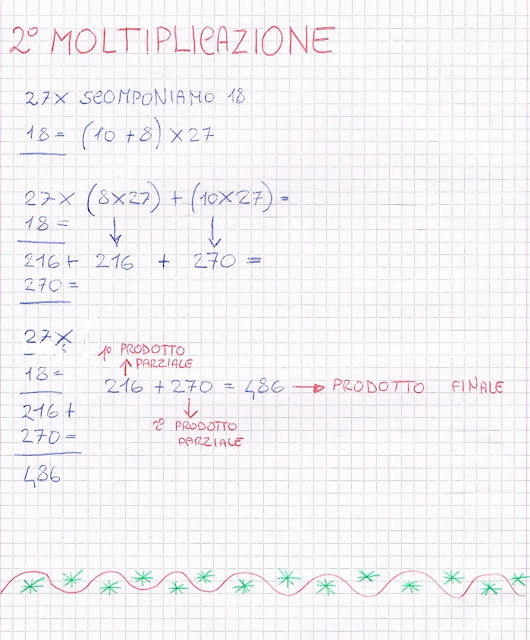 2° MOLTIPLICAZIONE
27× SCOMPONIAMO 18
18= (10+8)×27
27× (8×27)+(10×27)=
18=
216+ 216 + 270 =
270=
27×
1° PRODOTTO
PARZIALE
18=
216+270=486 → PRODOTTO FINALE
216+
2° PRODOTTO
270=
PARZIALE
486